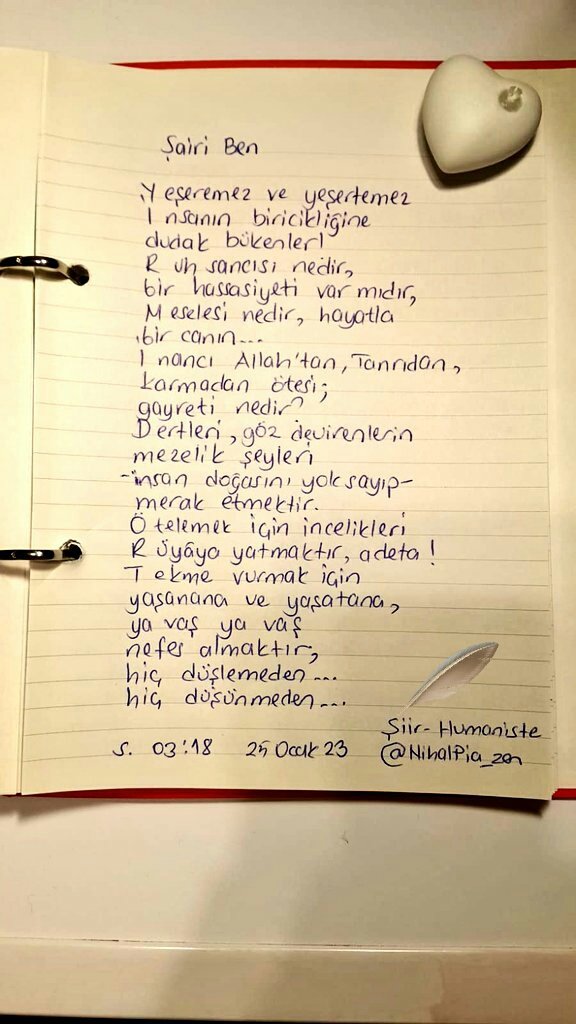 Şairi Ben
Y eşeremez ve yeşertemez
İ nsanın biricikliğine
dudak bükenler!
R uh sancısı nedir,
bir hassasiyeti var mıdır,
M eselesi nedir, hayatla
bir canın...
İ nancı Allah'tan, Tanrıdan,
karmadan ötesi;
gayreti nedir?
D ertleri, göz devirenlerin
mezelik şeyleri
-insan doğasını yok sayıp-
merak etmektir.
Ö telemek için incelikleri
R üyâya yatmaktır, adeta!
T ekme vurmak için
yaşanana ve yaşatana,
ya vaş ya vaş
nefes almaktır,
hiç düşlemeden...
hiç düşünmeden...
Şiir-Humaniste
S. 03:18 25 Ocak 23 @NihalPia_zen